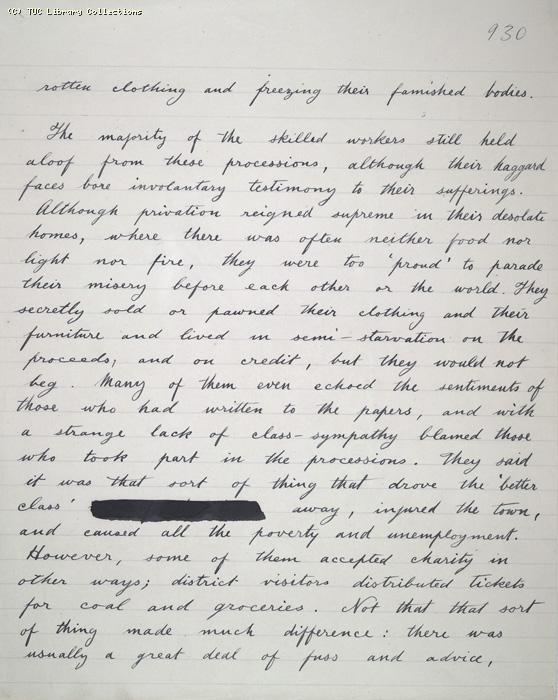 (C) TUC Library Collections
930
rotten clothing and freezing their famished bodies.
The majority of the skilled workers still held
aloof from these processions, although their haggard
faces bore involuntary testimony to their sufferings.
Although privation reigned supreme in their desolate
homes, where there was often neither food nor
light nor fire, they were too 'proud' to parade
their misery before each other or the world. They
secretly sold or pawned their clothing and their
furniture and lived in semi-starvation on the
proceeds, and on credit, but they would not
beg. Many of them even echoed the sentiments of
those who had written to the papers, and with
a strange lack of class-sympathy blamed those
who took part in the processions. They said
it was that sort of thing that drove the 'better
class' away, injured the town,
and caused all the poverty and unemployment.
However, some of them accepted charity in
other ways; district visitors distributed tickets
for coal and groceries. Not that that sort
of thing made much difference: there was
usually a great deal of fuss and advice,